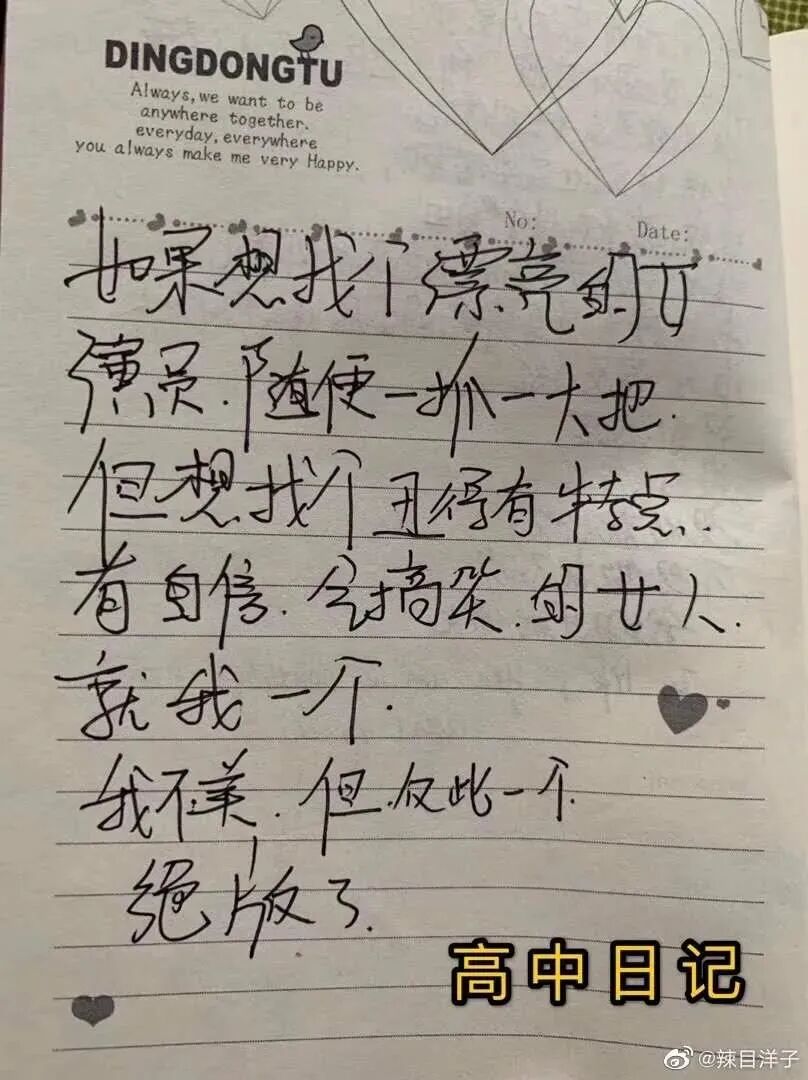 DINGDONGTU
Always, we want to be
anywhere together.
everyday, everywhere
you always make me very Happy.
No:
Date:
如果想找个漂亮的女
演员.随便一抓一大把.
但想找个丑得有特点.
有自信.会搞笑.的女人.
就我一个.
我不美.但.仅此一个.
绝版了.
高中日记
@辣目洋子